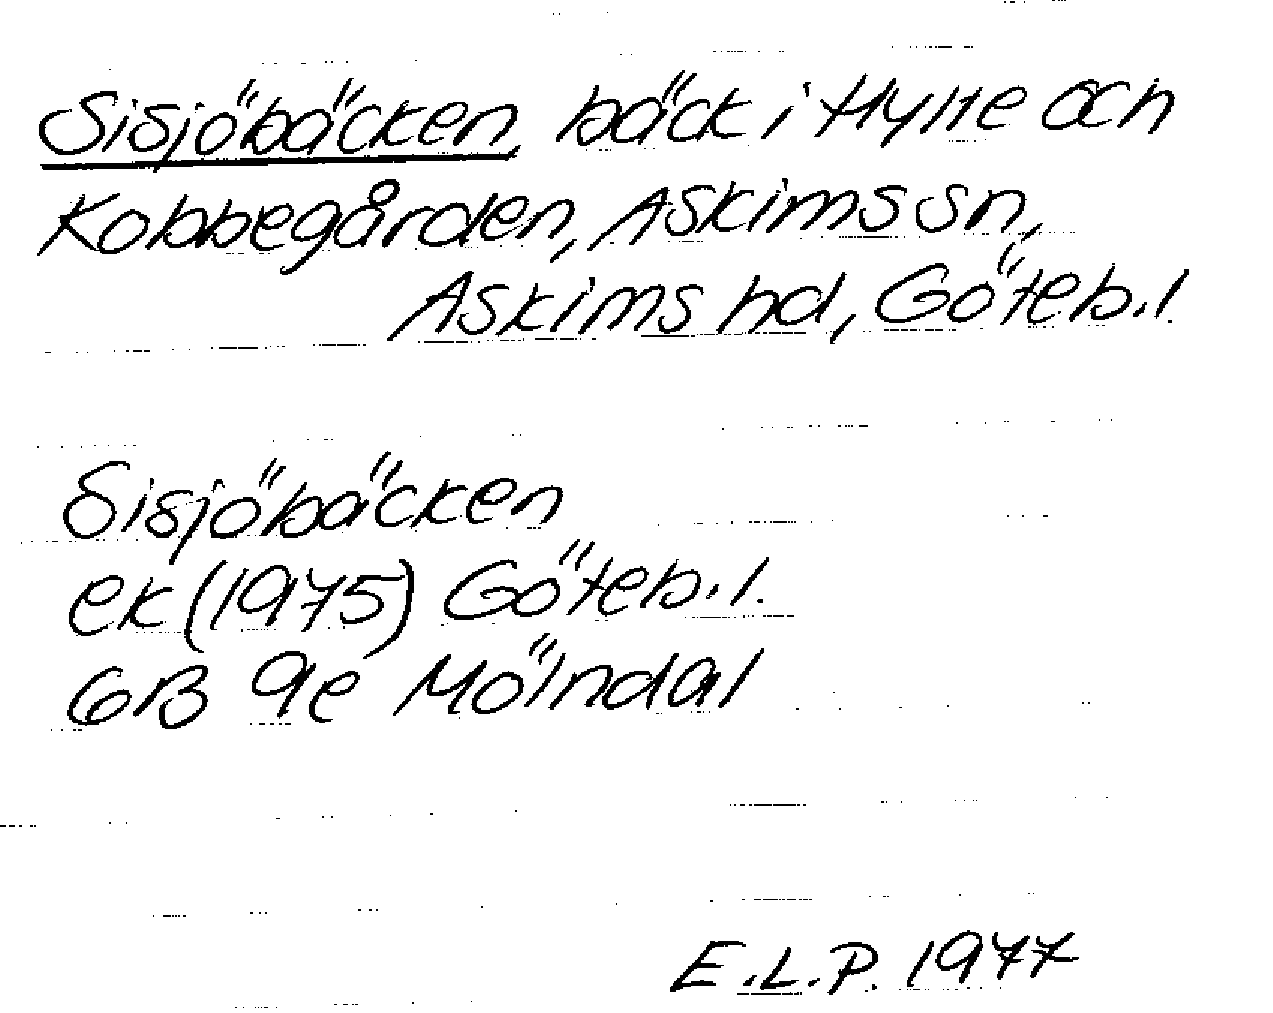 Sisjöbäcken, bäck i Hylte och
Kobbegården, Askims sn,
Askims hd, Göteb.l.
Sisjöbäcken
ek (1975) Göteb.l.
6B 9e Mölndal
E.L.P. 1977